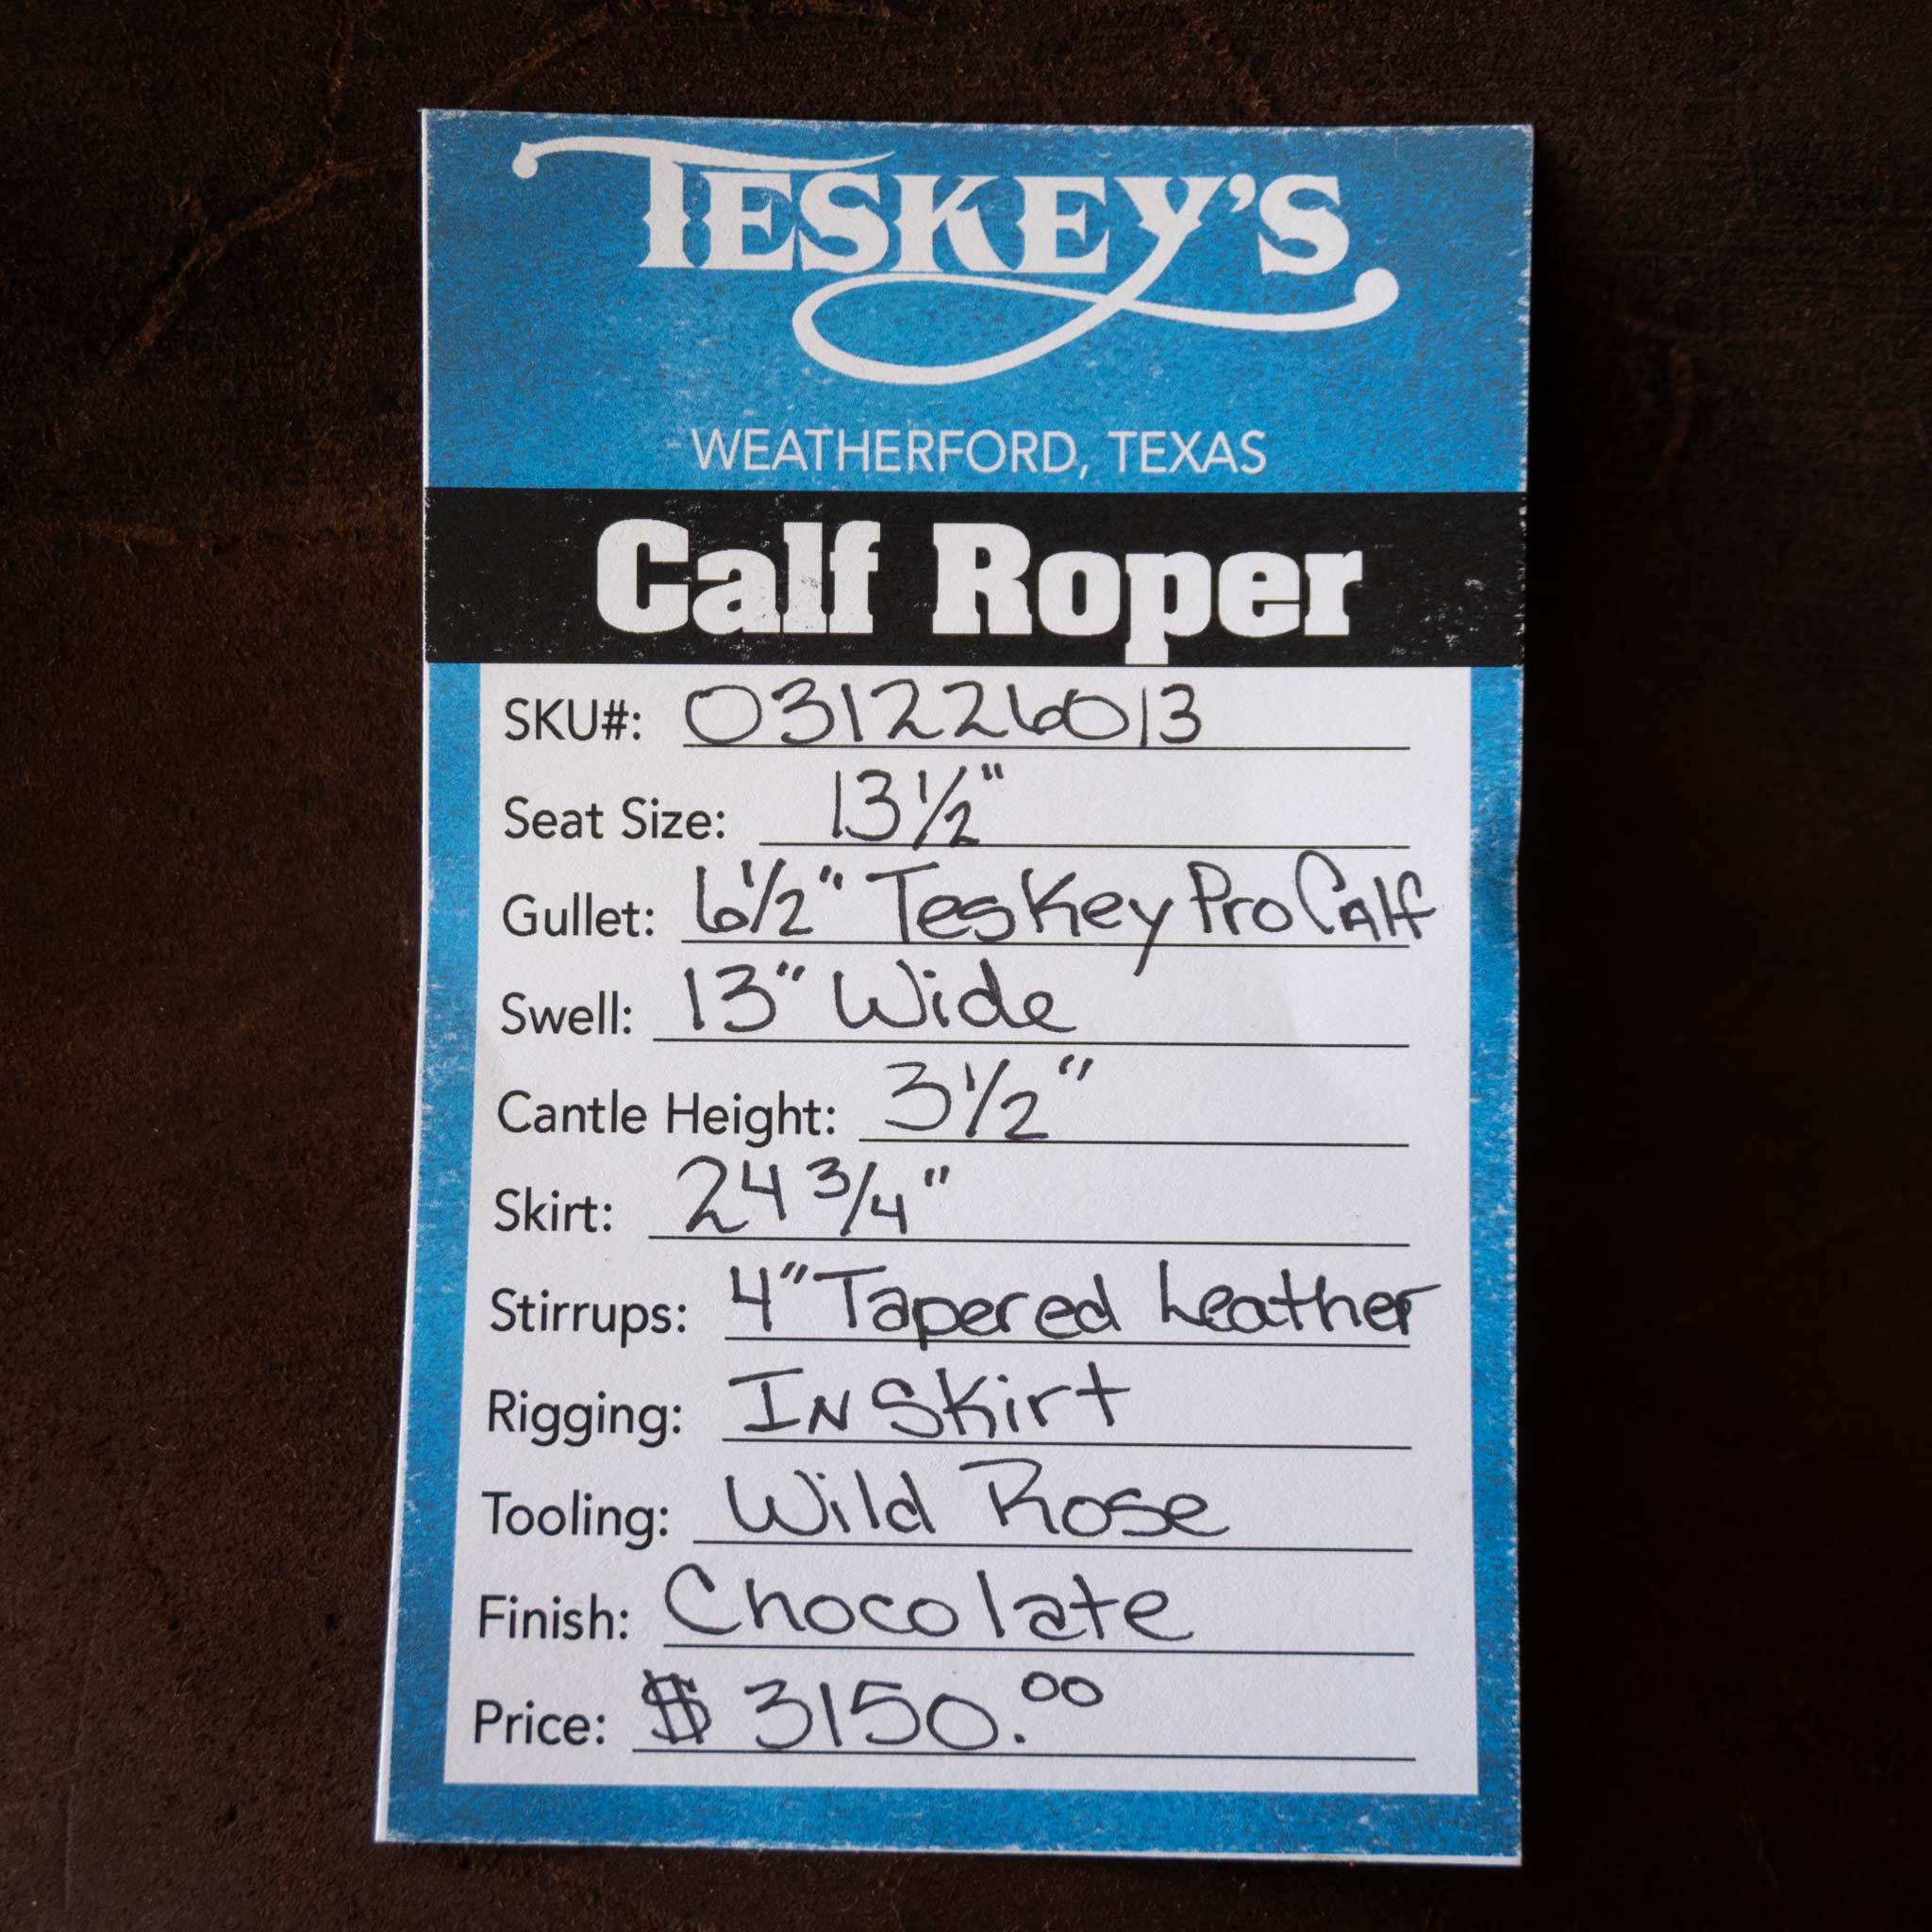 TESKEY'S
WEATHERFORD, TEXAS
Calf Roper
SKU#: 031226013
Seat Size: 13 1/2"
Gullet: 6 1/2" Teskey Pro Calf
Swell: 13" Wide
Cantle Height: 3 1/2"
Skirt: 24 3/4"
Stirrups: 4" Tapered Leather
Rigging: In Skirt
Tooling: Wild Rose
Finish: Chocolate
Price: $ 3150.00